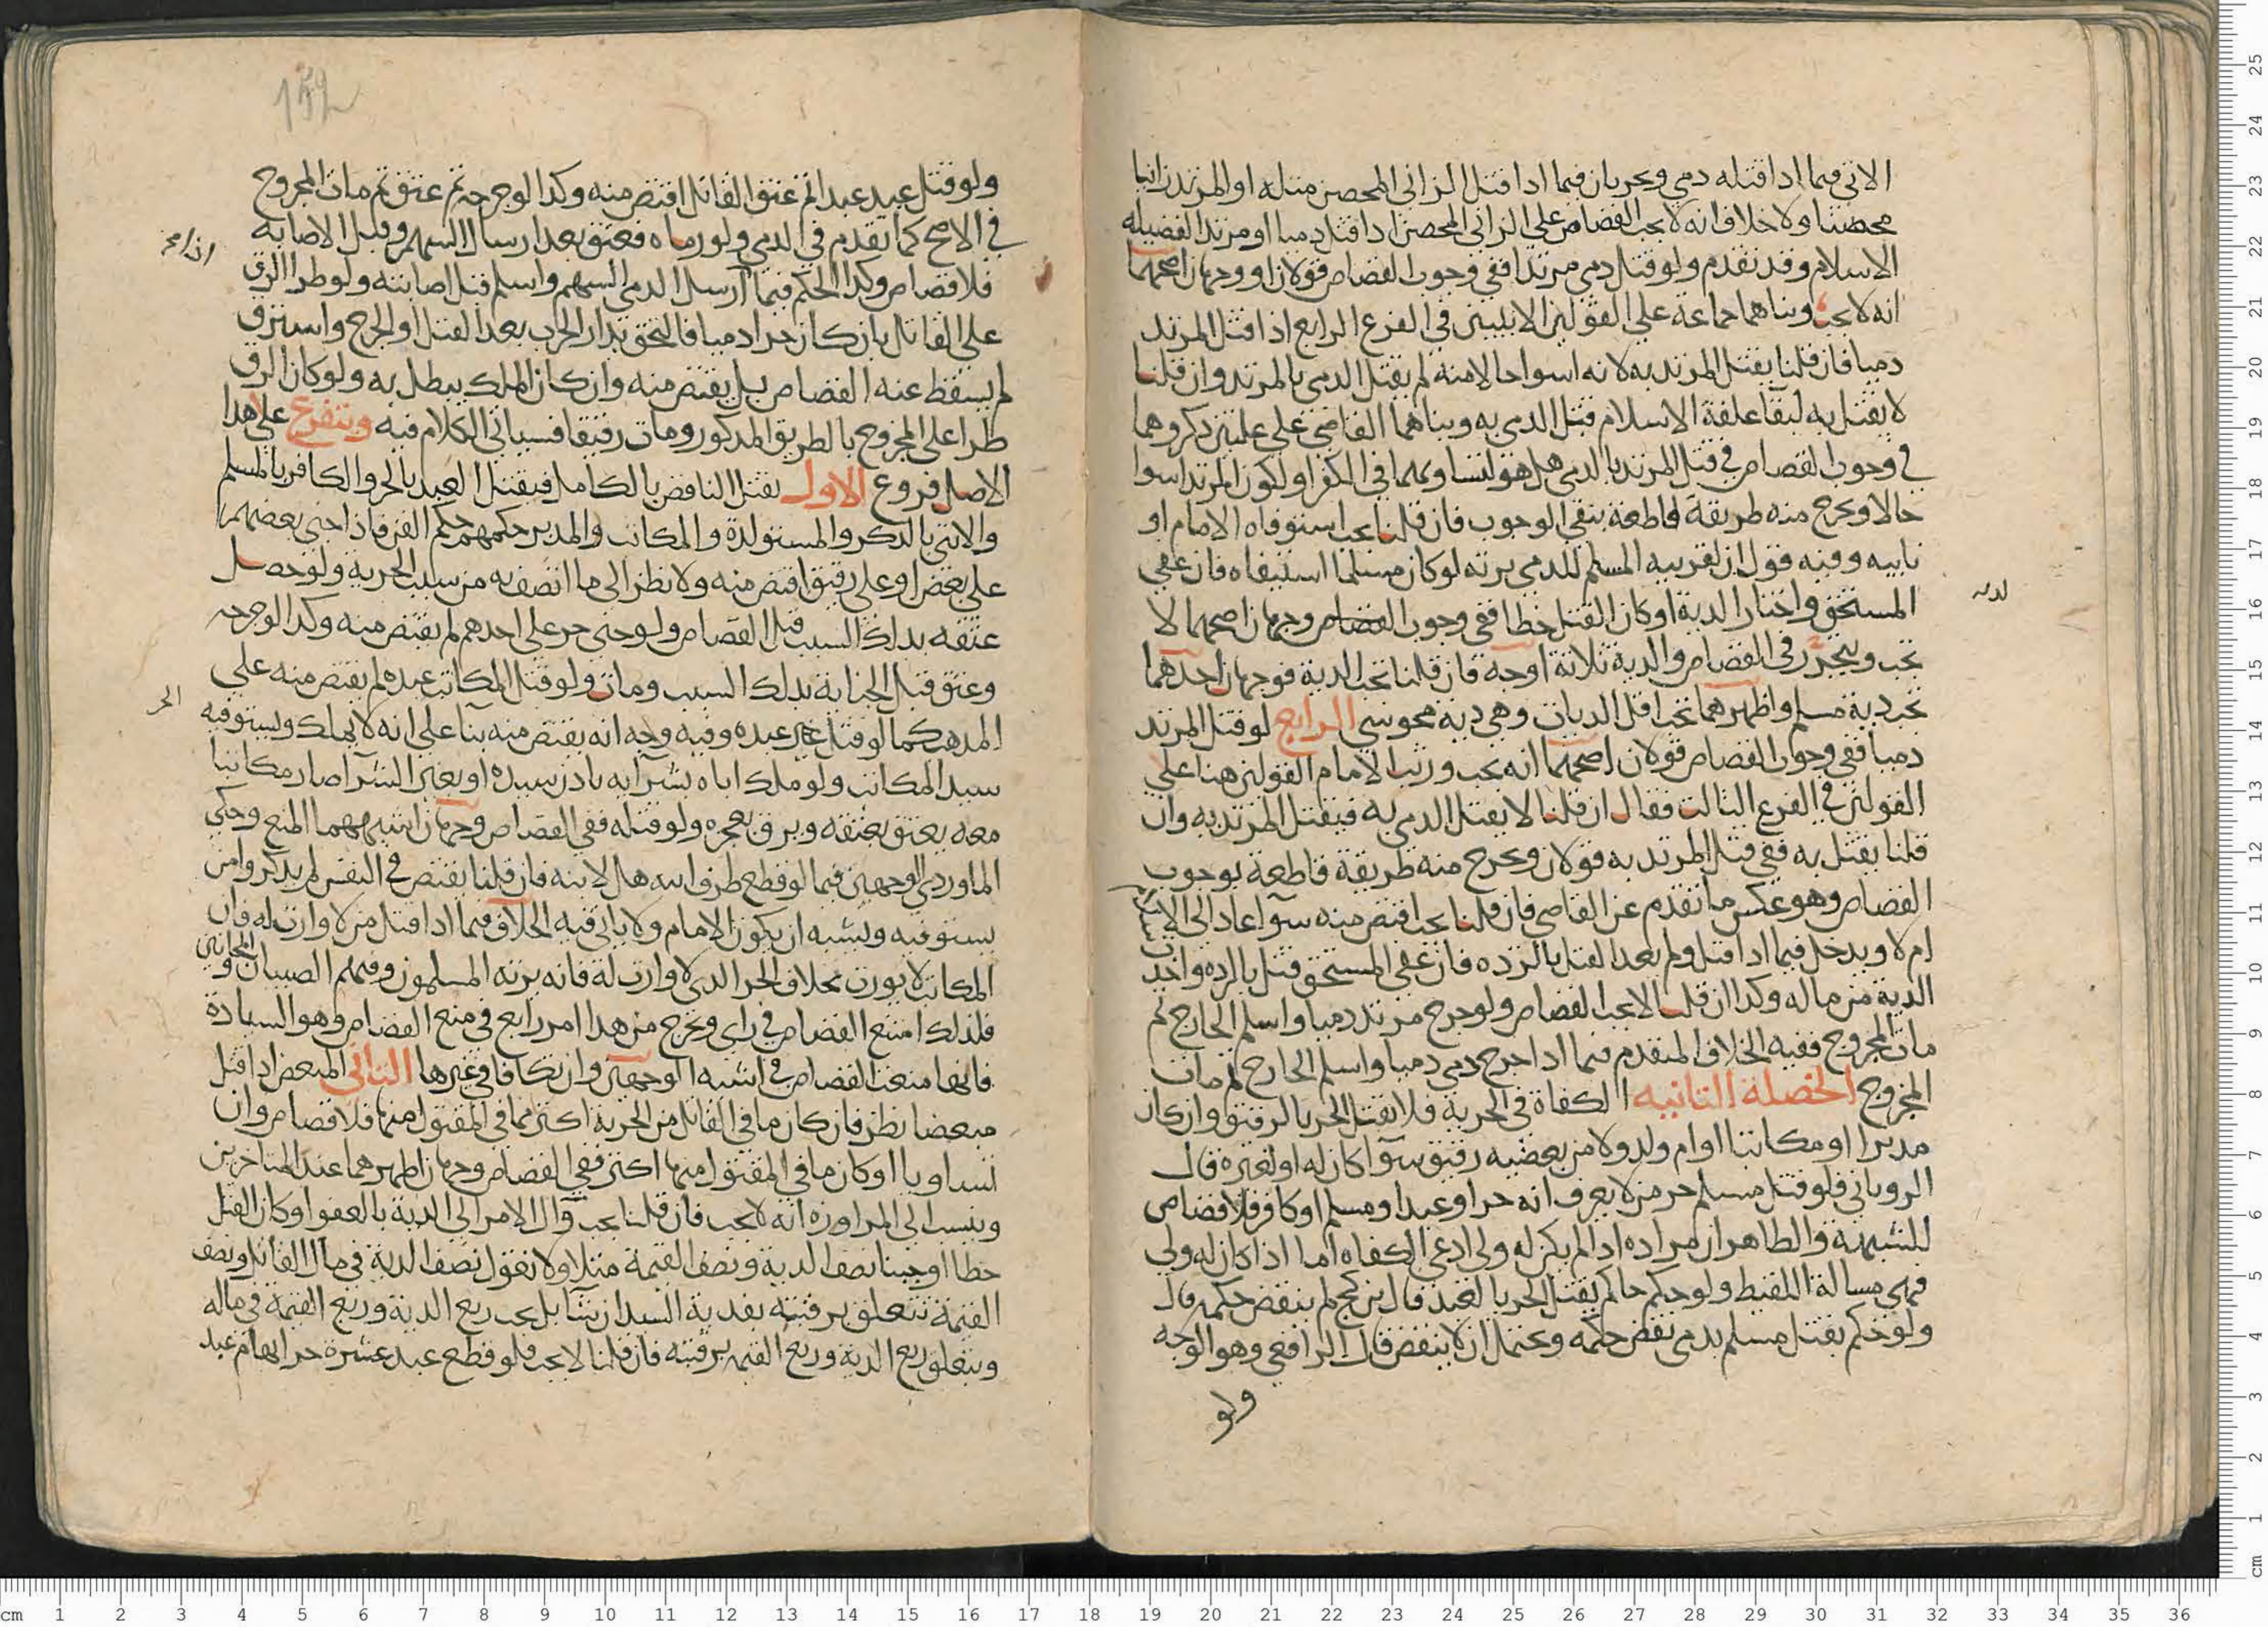 الاتي فيما اذا قتله دمي ويجريان فيما اذا قتل الزاني المحصن مثله او المرتد زانيا
محصنا ولا خلاف انه لا يجب القصاص على الزاني المحصن اذا قتل دميا او مرتدا لفضيله
الاسلام وقد تقدم ولو قتل دمي مرتدا ففي وجوب القصاص قولان او وجهان اصحهما
انه لا يجب وبناهما جماعة على القولين الاتيين في الفرع الرابع اذا قتل المرتد
دميا فان قلنا يقتل المرتد به لانه اسوا حالا منه لم يقتل الدمي بالمرتد وان قلنا
لا يقتل به لبقا علقة الاسلام قتل الدمي به وبناهما القاضي على علتين ذكروهما
في وجوب القصاص في قتل المرتد بالدمي هل هو لتساويهما في الكفر او لكون المرتد اسوا
حالا ويخرج منه طريقة قاطعة بنفي الوجوب فان قلنا يجب استوفاه الامام او
نايبه وفيه قول ان لقريبه المسلم للدمي يرثه لو كان مسلما استيفاه فان عفي
المستحق واختار الدية او كان القتل خطا ففي وجوب القصاص وجهان اصحهما لا
لديه
تجب ويتحرر في القصاص والدية ثلاثة اوجه فان قلنا تجب الدية فوجهان احدهما
تجب دية مسلم واظهرهما تجب اقل الديات وهي دية مجوسي الرابع لو قتل المرتد
دميا ففي وجوب القصاص قولان اصحهما انه يجب ورتب الامام القولين هنا على
القولين في الفرع الثالث فقال ان قلنا لا يقتل الدمي به فيقتل المرتد به وان
قلنا يقتل به ففي قتل المرتد به قولان ويخرج منه طريقة قاطعة بوجوب
القصاص وهو عكس ما تقدم عن القاضي فان قلنا يجب اقتص منه سوآ عاد الى الاسلام
ام لا ويدخل فيما اذا قتل ولم يعد القتل بالردة فان عفي المستحق قتل بالردة واخذ
الدية من ماله وكذا ان قلنا لا يجب القصاص ولو جرح مرتد دميا واسلم الجارح ثم
مات المجروح ففيه الخلاف المتقدم فيما اذا جرح دمي دميا واسلم الجارح ثم مات
المجروح الخصلة الثانيه الكفاة في الحرية فلا يقتل الحر بالرقيق وان كان
مدبرا او مكاتبا او ام ولد ولا من بعضه رقيق سوآ كان له او لغيره قال
الروياني فلو قتل مسلم حر من لا يعرف انه حر او عبد او مسلم او كافر فلا قصاص
للشبهة والظاهر ان مراده اذا لم يكن له ولي ادعى الكفاه اما اذا كان له ولي
فهي مسالة اللقيط ولو حكم حاكم بقتل الحر بالعبد قال بن كج لم ينقض حكمه قال
ولو حكم بقتل مسلم بدمي نقض حكمه ويحتمل ان لا ينقض قال الرافعي وهو الوجه
ولو
ولو قتل عبد عبدا ثم عتق القاتل اقتص منه وكذا لو جرحه ثم عتق ثم مات المجروح
في الاصح كما تقدم في الدمي ولو رماه فعتق بعد ارسال السهم وقبل الاصابه
فلا قصاص وكذا الحكم فيما ارسل الدمي السهم واسلم قبل اصابته ولو طرا الرق
على القاتل بان كان حرا دميا فالتحق بدار الحرب بعد القتل او الجرح واسترق
لم يسقط عنه القصاص بل يقتص منه وان كان الملك يبطل به ولو كان الرق
طرا على المجروح بالطريق المذكور ومات رقيقا فسياتي الكلام فيه ويتفرع على هذا
الاصل فروع الاول يقتل الناقص بالكامل فيقتل العبد بالحر والكافر بالمسلم
والانثى بالذكر والمستولدة والمكاتب والمدبر حكمهم حكم القن فاذا جنى بعضهم
على بعض او على رقيق اقتص منه ولا نظر الى ما اتصف به من سبب الحرية ولو حصل
عتقه بذلك السبب قبل القصاص ولو جنى حر على احدهم لم يقتص منه وكذا لو جرحه
وعتق قبل الجناية بذلك السبب ومات ولو قتل المكاتب عبده لم يقتص منه على
الحر
المذهب كما لو قتل غير عبده وفيه وجه انه يقتص منه بنآ على انه لا يملك ويستوفيه
سيد المكاتب ولو ملك اباه بشرايه باذن سيده او بغير الشرا صار مكاتبا
معه يعتق بعتقه ويرق بعجزه ولو قتله ففي القصاص وجهان اشبههما المنع وحكى
الماوردي الوجهين فيما لو قطع طرف ابيه هل لابنه فان قلنا يقتص في النفس لم يذكروا من
يستوفيه ويشبه ان يكون الامام ولا ياتي فيه الخلاف فيما اذا قتل من لا وارث له فان
المكاتب لا يورث بخلاف الحر الذي لا وارث له فانه يرثه المسلمون وفيهم الصبيان والمجانين
فلذلك امتنع القصاص في راي ويخرج من هذا امر رابع في منع القصاص وهو السيادة
فانها منعت القصاص في اشبه الوجهين وان تكافا في غيرها الثاني المبعض اذا قتل
مبعضا نظر فان كان ما في القاتل من الحرية اكثر مما في المقتول منها فلا قصاص وان
تساويا او كان ما في المقتول منها اكثر ففي القصاص وجهان اظهرهما عند المتاخرين
وينسب الى المراوزه انه لا يجب فان قلنا يجب وآل الامر الى الدية بالعفو او كان القتل
خطا اوجبنا نصف الدية ونصف القيمة مثلا ولا نقول نصف الدية في مال القاتل ونصف
القيمة تتعلق برقبته يفديه السيد ان شآ بل يجب ربع الدية وربع القيمة في ماله
ويتعلق ربع الدية وربع القيمه برقبته فان قلنا لا يجب فلو قطع عبد عشرة حر ابهام عبد